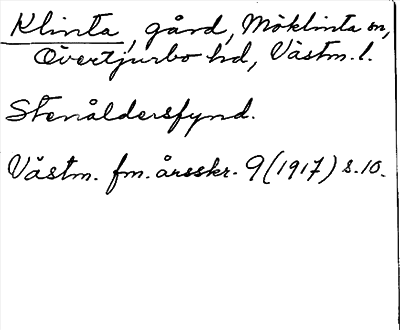 Klinta, gård, Möklinta sn,
Övertjurbo hd, Västm. l.
Stenåldersfynd.
Västm. fm. årsskr. 9 (1917) s. 10.